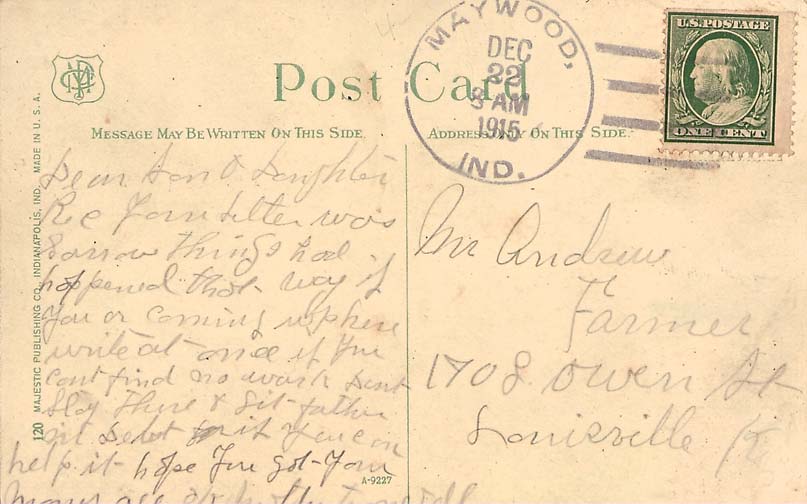 MAYWOOD,
DEC
22
8 AM
1915
IND.
U.S. POSTAGE
ONE CENT
Post Card
MESSAGE MAY BE WRITTEN ON THIS SIDE.
ADDRESS ONLY ON THIS SIDE.
120 MAJESTIC PUBLISHING CO., INDIANAPOLIS, IND. MADE IN U. S. A.
Dear Son & Daughter
Rec your letter was
Sorrow things had
happened that way if
you or coming up here
write at once if you
cant find no work dont
Stay there & Sit father
in debt if you can
help it hope you got your
A-9227
Mr Andrew
Farmer
1708 Owen St
Louisville Ky